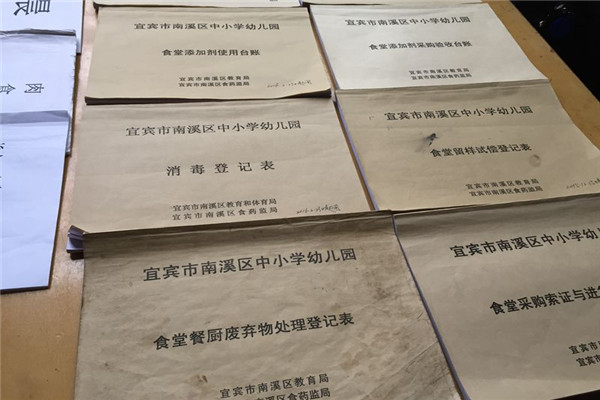 宜宾市南溪区中小学幼儿园
食堂添加剂使用台账
宜宾市南溪区教育局
宜宾市南溪区食药监局
宜宾市南溪区中小学幼儿园
食堂添加剂采购验收台账
宜宾市南溪区教育局
宜宾市南溪区食药监局
宜宾市南溪区中小学幼儿园
消毒登记表
宜宾市南溪区教育和体育局
宜宾市南溪区食药监局
宜宾市南溪区中小学幼儿园
食堂留样试偿登记表
宜宾市南溪区教育局
宜宾市南溪区食药监局
宜宾市南溪区中小学幼儿园
食堂餐厨废弃物处理登记表
宜宾市南溪区教育局
宜宾市南溪区食药监局
宜宾市南溪区中小学幼儿园
食堂采购索证与进
宜宾市南
宜宾市南
肉食